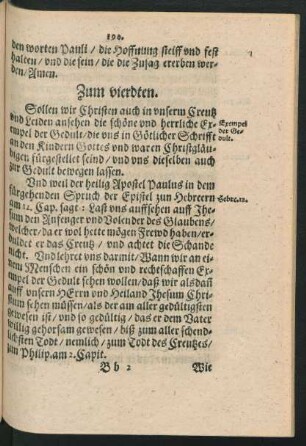 190.
den worten Pauli / die Hoffnung steiff vnd fest
halten / vnd die sein / die die Zusag ererben wer-
den / Amen.
Zum vierdten.
Sollen wir Christen auch in vnserm Creutz
vnd Leiden ansehen die schöne vnd herrliche Ex-
empel der Gedult / die vns in Götlicher Schrifft
an den Kindern Gottes vnd waren Christgläu-
bigen fürgestellet seind / vnd vns dieselben auch
zur Gedult bewegen lassen.
Exempel
der Ge-
dult.
Vnd weil der heilig Apostel Paulus in dem
fürgehenden Spruch der Epistel zun Hebreern
am 12. Cap. sagt: Last vns auffsehen auff Jhe-
sum den Anfenger vnd Volender des Glaubens /
welcher / da er wol hette mögen Frewd haben / er-
duldet er das Creutz / vnd achtet die Schande
nicht. Vnd lehret vns darmit / Wann wir an ei-
nem Menschen ein schön vnd rechtschaffen Ex-
empel der Gedult sehen wollen / daß wir als dañ
auff vnsern HErrn vnd Heiland Jhesum Chri-
stum sehen müssen / als der am aller gedültigsten
gewesen ist / vnd so gedültig / das er dem Vater
willig gehorsam gewesen / biß zum aller schend-
lichsten Todt / nemlich / zum Todt des Creutzes /
zun Philip. am 2. Capit.
Hebre. 12.
B b 2 Wie